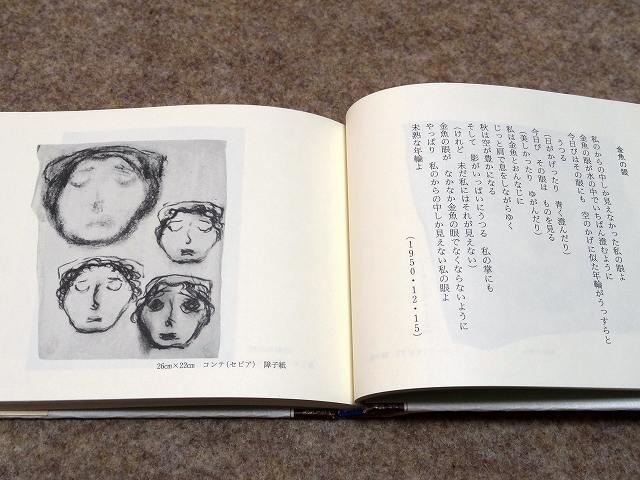 金魚の眼
私のからの中しか見えなかった私の眼よ
金魚の眼が水の中でいちばん澄むように
今日びはその眼にも 空のかげに似た年輪がうっすらと
うつる
(日がかげったり 青く澄んだり)
今日び その眼は ものを見る
(美しかったり ゆがんだり)
私は金魚とおんなじに
じっと肩で息をしながらゆく
秋は空が豊かになる
そして 影がいっぱいにうつる 私の掌にも
(けれど 未だ私にはそれが見えない)
金魚の眼が なかなか金魚の眼でなくならないように
やっぱり 私のからの中しか見えない私の眼よ
未熟な年輪よ
(1950・12・15)
26cm×22cm コンテ(セピア) 障子紙